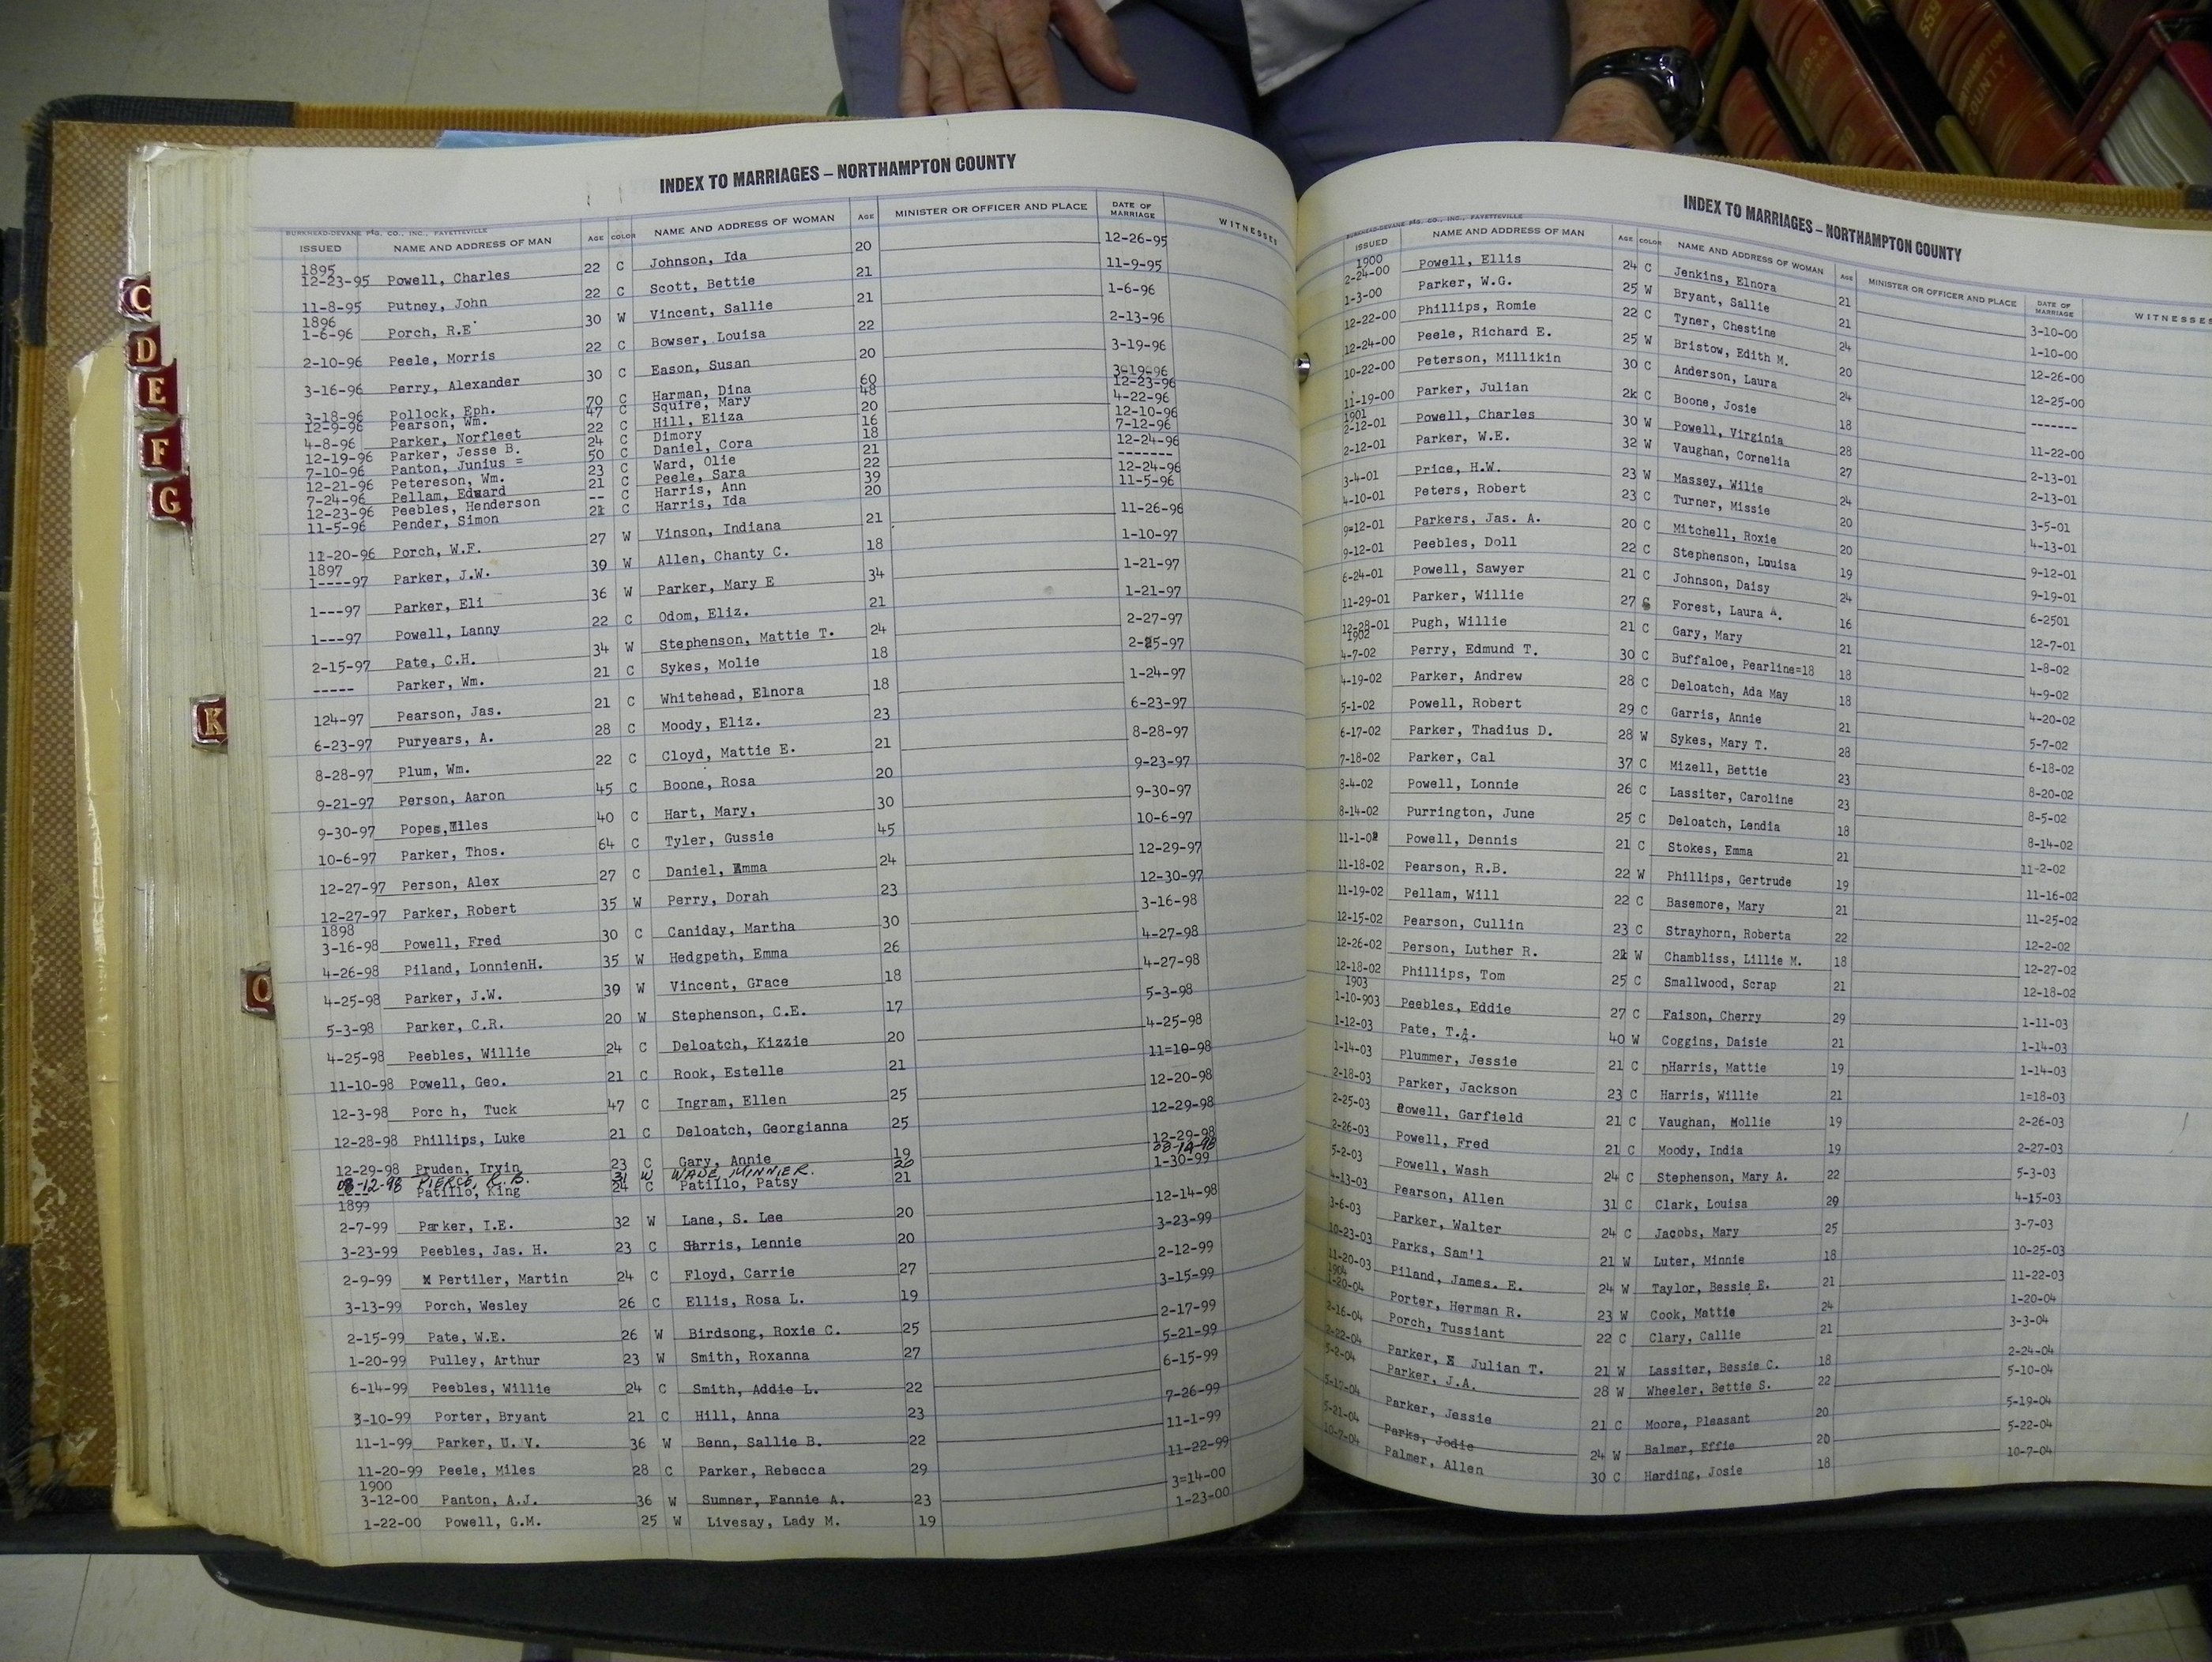 INDEX TO MARRIAGES – NORTHAMPTON COUNTY
BURKHEAD-DEVANE PTG. CO., INC., FAYETTEVILLE
ISSUED NAME AND ADDRESS OF MAN AGE COLOR NAME AND ADDRESS OF WOMAN AGE MINISTER OR OFFICER AND PLACE DATE OF MARRIAGE WITNESSES
1895
12-23-95 Powell, Charles 22 C Johnson, Ida 20 12-26-95
11-8-95 Putney, John 22 C Scott, Bettie 21 11-9-95
1896
1-6-96 Porch, R.E 30 W Vincent, Sallie 21 1-6-96
2-10-96 Peele, Morris 22 C Bowser, Louisa 22 2-13-96
3-16-96 Perry, Alexander 30 C Eason, Susan 20 3-19-96
3-18-96 Pollock, Eph. 70 C Harman, Dina 60 3-19-96
12-9-96 Pearson, Wm. 47 C Squire, Mary 48 12-23-96
4-8-96 Parker, Norfleet 22 C Hill, Eliza 20 4-22-96
12-19-96 Parker, Jesse B. 24 C Dimory 16 12-10-96
7-10-96 Panton, Junius = 50 C Daniel, Cora 18 7-12-96
12-21-96 Petereson, Wm. 23 C Ward, Olie 21 12-24-96
7-24-96 Pellam, Edward 21 C Peele, Sara 22 -------
12-23-96 Peebles, Henderson -- C Harris, Ann 39 12-24-96
11-5-96 Pender, Simon 21 C Harris, Ida 20 11-5-96
11-20-96 Porch, W.F. 27 W Vinson, Indiana 21 11-26-96
1897
1----97 Parker, J.W. 39 W Allen, Chanty C. 18 1-10-97
1---97 Parker, Eli 36 W Parker, Mary E 34 1-21-97
1---97 Powell, Lanny 22 C Odom, Eliz. 21 1-21-97
2-15-97 Pate, C.H. 34 W Stephenson, Mattie T. 24 2-27-97
----- Parker, Wm. 21 C Sykes, Molie 18 2-25-97
124-97 Pearson, Jas. 21 C Whitehead, Elnora 18 1-24-97
6-23-97 Puryears, A. 28 C Moody, Eliz. 23 6-23-97
8-28-97 Plum, Wm. 22 C Cloyd, Mattie E. 21 8-28-97
9-21-97 Person, Aaron 45 C Boone, Rosa 20 9-23-97
9-30-97 Popes, Miles 40 C Hart, Mary, 30 9-30-97
10-6-97 Parker, Thos. 64 C Tyler, Gussie 45 10-6-97
12-27-97 Person, Alex 27 C Daniel, Emma 24 12-29-97
12-27-97 Parker, Robert 35 W Perry, Dorah 23 12-30-97
1898
3-16-98 Powell, Fred 30 C Caniday, Martha 30 3-16-98
4-26-98 Piland, LonnienH. 35 W Hedgpeth, Emma 26 4-27-98
4-25-98 Parker, J.W. 39 W Vincent, Grace 18 4-27-98
5-3-98 Parker, C.R. 20 W Stephenson, C.E. 17 5-3-98
4-25-98 Peebles, Willie 24 C Deloatch, Kizzie 20 4-25-98
11-10-98 Powell, Geo. 21 C Rook, Estelle 21 11=10-98
12-3-98 Porc h, Tuck 47 C Ingram, Ellen 25 12-20-98
12-28-98 Phillips, Luke 21 C Deloatch, Georgianna 25 12-29-98
12-29-98 Pruden, Irvin 23 C Gary, Annie 19 12-29-98
08-12-98 PIERCE, R.B. 31 W WADE MINNIER. 20 08-14-98
----- Patillo, King 24 C Patillo, Patsy 21 1-30-99
1899
2-7-99 Parker, I.E. 32 W Lane, S. Lee 20 12-14-98
3-23-99 Peebles, Jas. H. 23 C Harris, Lennie 20 3-23-99
2-9-99 M Pertiler, Martin 24 C Floyd, Carrie 27 2-12-99
3-13-99 Porch, Wesley 26 C Ellis, Rosa L. 19 3-15-99
2-15-99 Pate, W.E. 26 W Birdsong, Roxie C. 25 2-17-99
1-20-99 Pulley, Arthur 23 W Smith, Roxanna 27 5-21-99
6-14-99 Peebles, Willie 24 C Smith, Addie L. 22 6-15-99
3-10-99 Porter, Bryant 21 C Hill, Anna 23 7-26-99
11-1-99 Parker, U.V. 36 W Benn, Sallie B. 22 11-1-99
11-20-99 Peele, Miles 28 C Parker, Rebecca 29 11-22-99
1900
3-12-00 Panton, A.J. 36 W Sumner, Fannie A. 23 3=14-00
1-22-00 Powell, G.M. 25 W Livesay, Lady M. 19 1-23-00
C
D
E
F
G
K
O
INDEX TO MARRIAGES – NORTHAMPTON COUNTY
BURKHEAD-DEVANE PTG. CO., INC., FAYETTEVILLE
ISSUED NAME AND ADDRESS OF MAN AGE COLOR NAME AND ADDRESS OF WOMAN AGE MINISTER OR OFFICER AND PLACE DATE OF MARRIAGE WITNESSES
1900
2-24-00 Powell, Ellis 24 C Jenkins, Elnora 21 3-10-00
1-3-00 Parker, W.G. 25 W Bryant, Sallie 21 1-10-00
12-22-00 Phillips, Romie 22 C Tyner, Chestine 24 12-26-00
12-24-00 Peele, Richard E. 25 W Bristow, Edith M. 20 12-25-00
10-22-00 Peterson, Millikin 30 C Anderson, Laura 24 -------
11-19-00 Parker, Julian 2k C Boone, Josie 18 11-22-00
1901
2-12-01 Powell, Charles 30 W Powell, Virginia 28 2-13-01
2-12-01 Parker, W.E. 32 W Vaughan, Cornelia 27 2-13-01
3-4-01 Price, H.W. 23 W Massey, Wilie 24 3-5-01
4-10-01 Peters, Robert 23 C Turner, Missie 20 4-13-01
9=12-01 Parkers, Jas. A. 20 C Mitchell, Roxie 20 9-12-01
9-12-01 Peebles, Doll 22 C Stephenson, Louisa 19 9-19-01
6-24-01 Powell, Sawyer 21 C Johnson, Daisy 24 6-2501
11-29-01 Parker, Willie 27 C Forest, Laura A. 16 12-7-01
12-28-01 Pugh, Willie 21 C Gary, Mary 21 1-8-02
1902
4-7-02 Perry, Edmund T. 30 C Buffaloe, Pearline=18 18 4-9-02
4-19-02 Parker, Andrew 28 C Deloatch, Ada May 18 4-20-02
5-1-02 Powell, Robert 29 C Garris, Annie 21 5-7-02
6-17-02 Parker, Thadius D. 28 W Sykes, Mary T. 28 6-18-02
7-18-02 Parker, Cal 37 C Mizell, Bettie 23 8-20-02
8-4-02 Powell, Lonnie 26 C Lassiter, Caroline 23 8-5-02
8-14-02 Purrington, June 25 C Deloatch, Lendia 18 8-14-02
11-1-02 Powell, Dennis 21 C Stokes, Emma 21 11-2-02
11-18-02 Pearson, R.B. 22 W Phillips, Gertrude 19 11-16-02
11-19-02 Pellam, Will 22 C Basemore, Mary 21 11-25-02
12-15-02 Pearson, Cullin 23 C Strayhorn, Roberta 22 12-2-02
12-26-02 Person, Luther R. 21 W Chambliss, Lillie M. 18 12-27-02
12-18-02 Phillips, Tom 25 C Smallwood, Scrap 21 12-18-02
1903
1-10-903 Peebles, Eddie 27 C Faison, Cherry 29 1-11-03
1-12-03 Pate, T.A. 40 W Coggins, Daisie 21 1-14-03
1-14-03 Plummer, Jessie 21 C DHarris, Mattie 19 1-14-03
2-18-03 Parker, Jackson 23 C Harris, Willie 21 1=18-03
2-25-03 Powell, Garfield 21 C Vaughan, Mollie 19 2-26-03
2-26-03 Powell, Fred 21 C Moody, India 19 2-27-03
5-2-03 Powell, Wash 24 C Stephenson, Mary A. 22 5-3-03
4-13-03 Pearson, Allen 31 C Clark, Louisa 29 4-15-03
3-6-03 Parker, Walter 24 C Jacobs, Mary 25 3-7-03
10-23-03 Parks, Sam'l 21 W Luter, Minnie 18 10-25-03
11-20-03 Piland, James. E. 24 W Taylor, Bessie E. 21 11-22-03
1904
1-20-04 Porter, Herman R. 23 W Cook, Mattie 24 1-20-04
2-16-04 Porch, Tussiant 22 C Clary, Callie 21 3-3-04
2-22-04 Parker, X Julian T. 21 W Lassiter, Bessie C. 18 2-24-04
5-2-04 Parker, J.A. 28 W Wheeler, Bettie S. 22 5-10-04
5-17-04 Parker, Jessie 21 C Moore, Pleasant 20 5-19-04
5-21-04 Parks, Jodie 24 W Balmer, Effie 20 5-22-04
10-7-04 Palmer, Allen 30 C Harding, Josie 18 10-7-04
559
NORTHAMPTON COUNTY